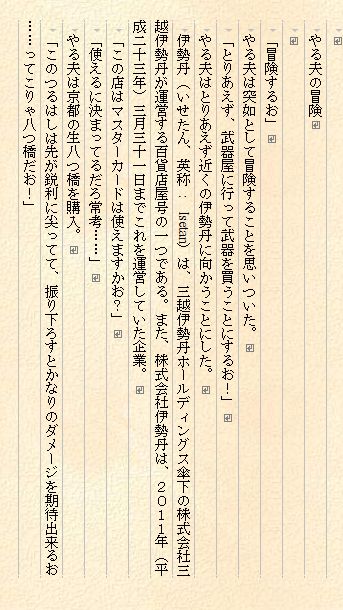 やる夫の冒険
「冒険するお」
やる夫は突如として冒険することを思いついた。
「とりあえず、武器屋に行って武器を買うことにするお!」
やる夫はとりあえず近くの伊勢丹に向かうことにした。
伊勢丹（いせたん、英称：Isetan）は、三越伊勢丹ホールディングス傘下の株式会社三
越伊勢丹が運営する百貨店屋号の一つである。また、株式会社伊勢丹は、２０１１年（平
成二十三年）三月三十一日までこれを運営していた企業。
「この店はマスターカードは使えますかお?」
「使えるに決まってるだろ常考……」
やる夫は京都の生八つ橋を購入。
「このつるはしは先が鋭利に尖ってて、振り下ろすとかなりのダメージを期待出来るお
……ってこりゃ八つ橋だお!」